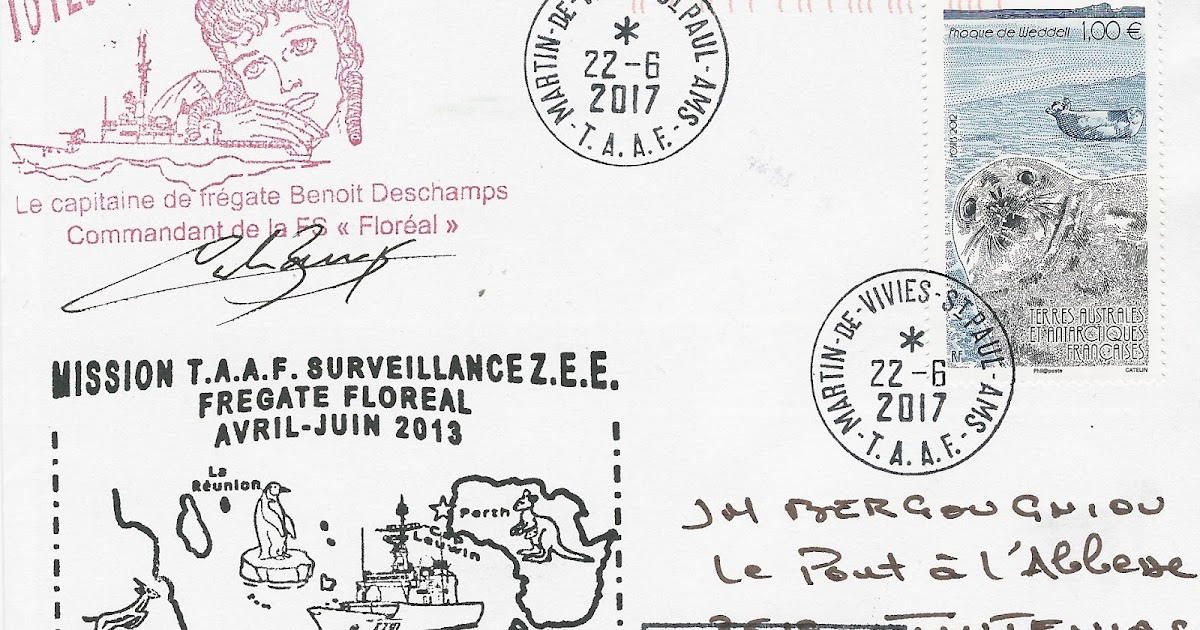 Le capitaine de frégate Benoit Deschamps
Commandant de la FS « Floréal »
MARTIN-DE-VIVIES-ST PAUL-AMS
22-6
2017
-T.A.A.F.-
Phoque de Weddell 1,00 €
TERRES AUSTRALES
ET ANTARCTIQUES
FRANÇAISES
RF
Phil@poste
CATELIN
MARTIN-DE-VIVIES-ST PAUL-AMS
22-6
2017
-T.A.A.F.-
MISSION T.A.A.F. SURVEILLANCE Z.E.E.
FREGATE FLOREAL
AVRIL-JUIN 2013
La
Réunion
Perth
Cap
Leuwin
F730
JM BERGOUGNIOU
Le Pont à l'Abbesse